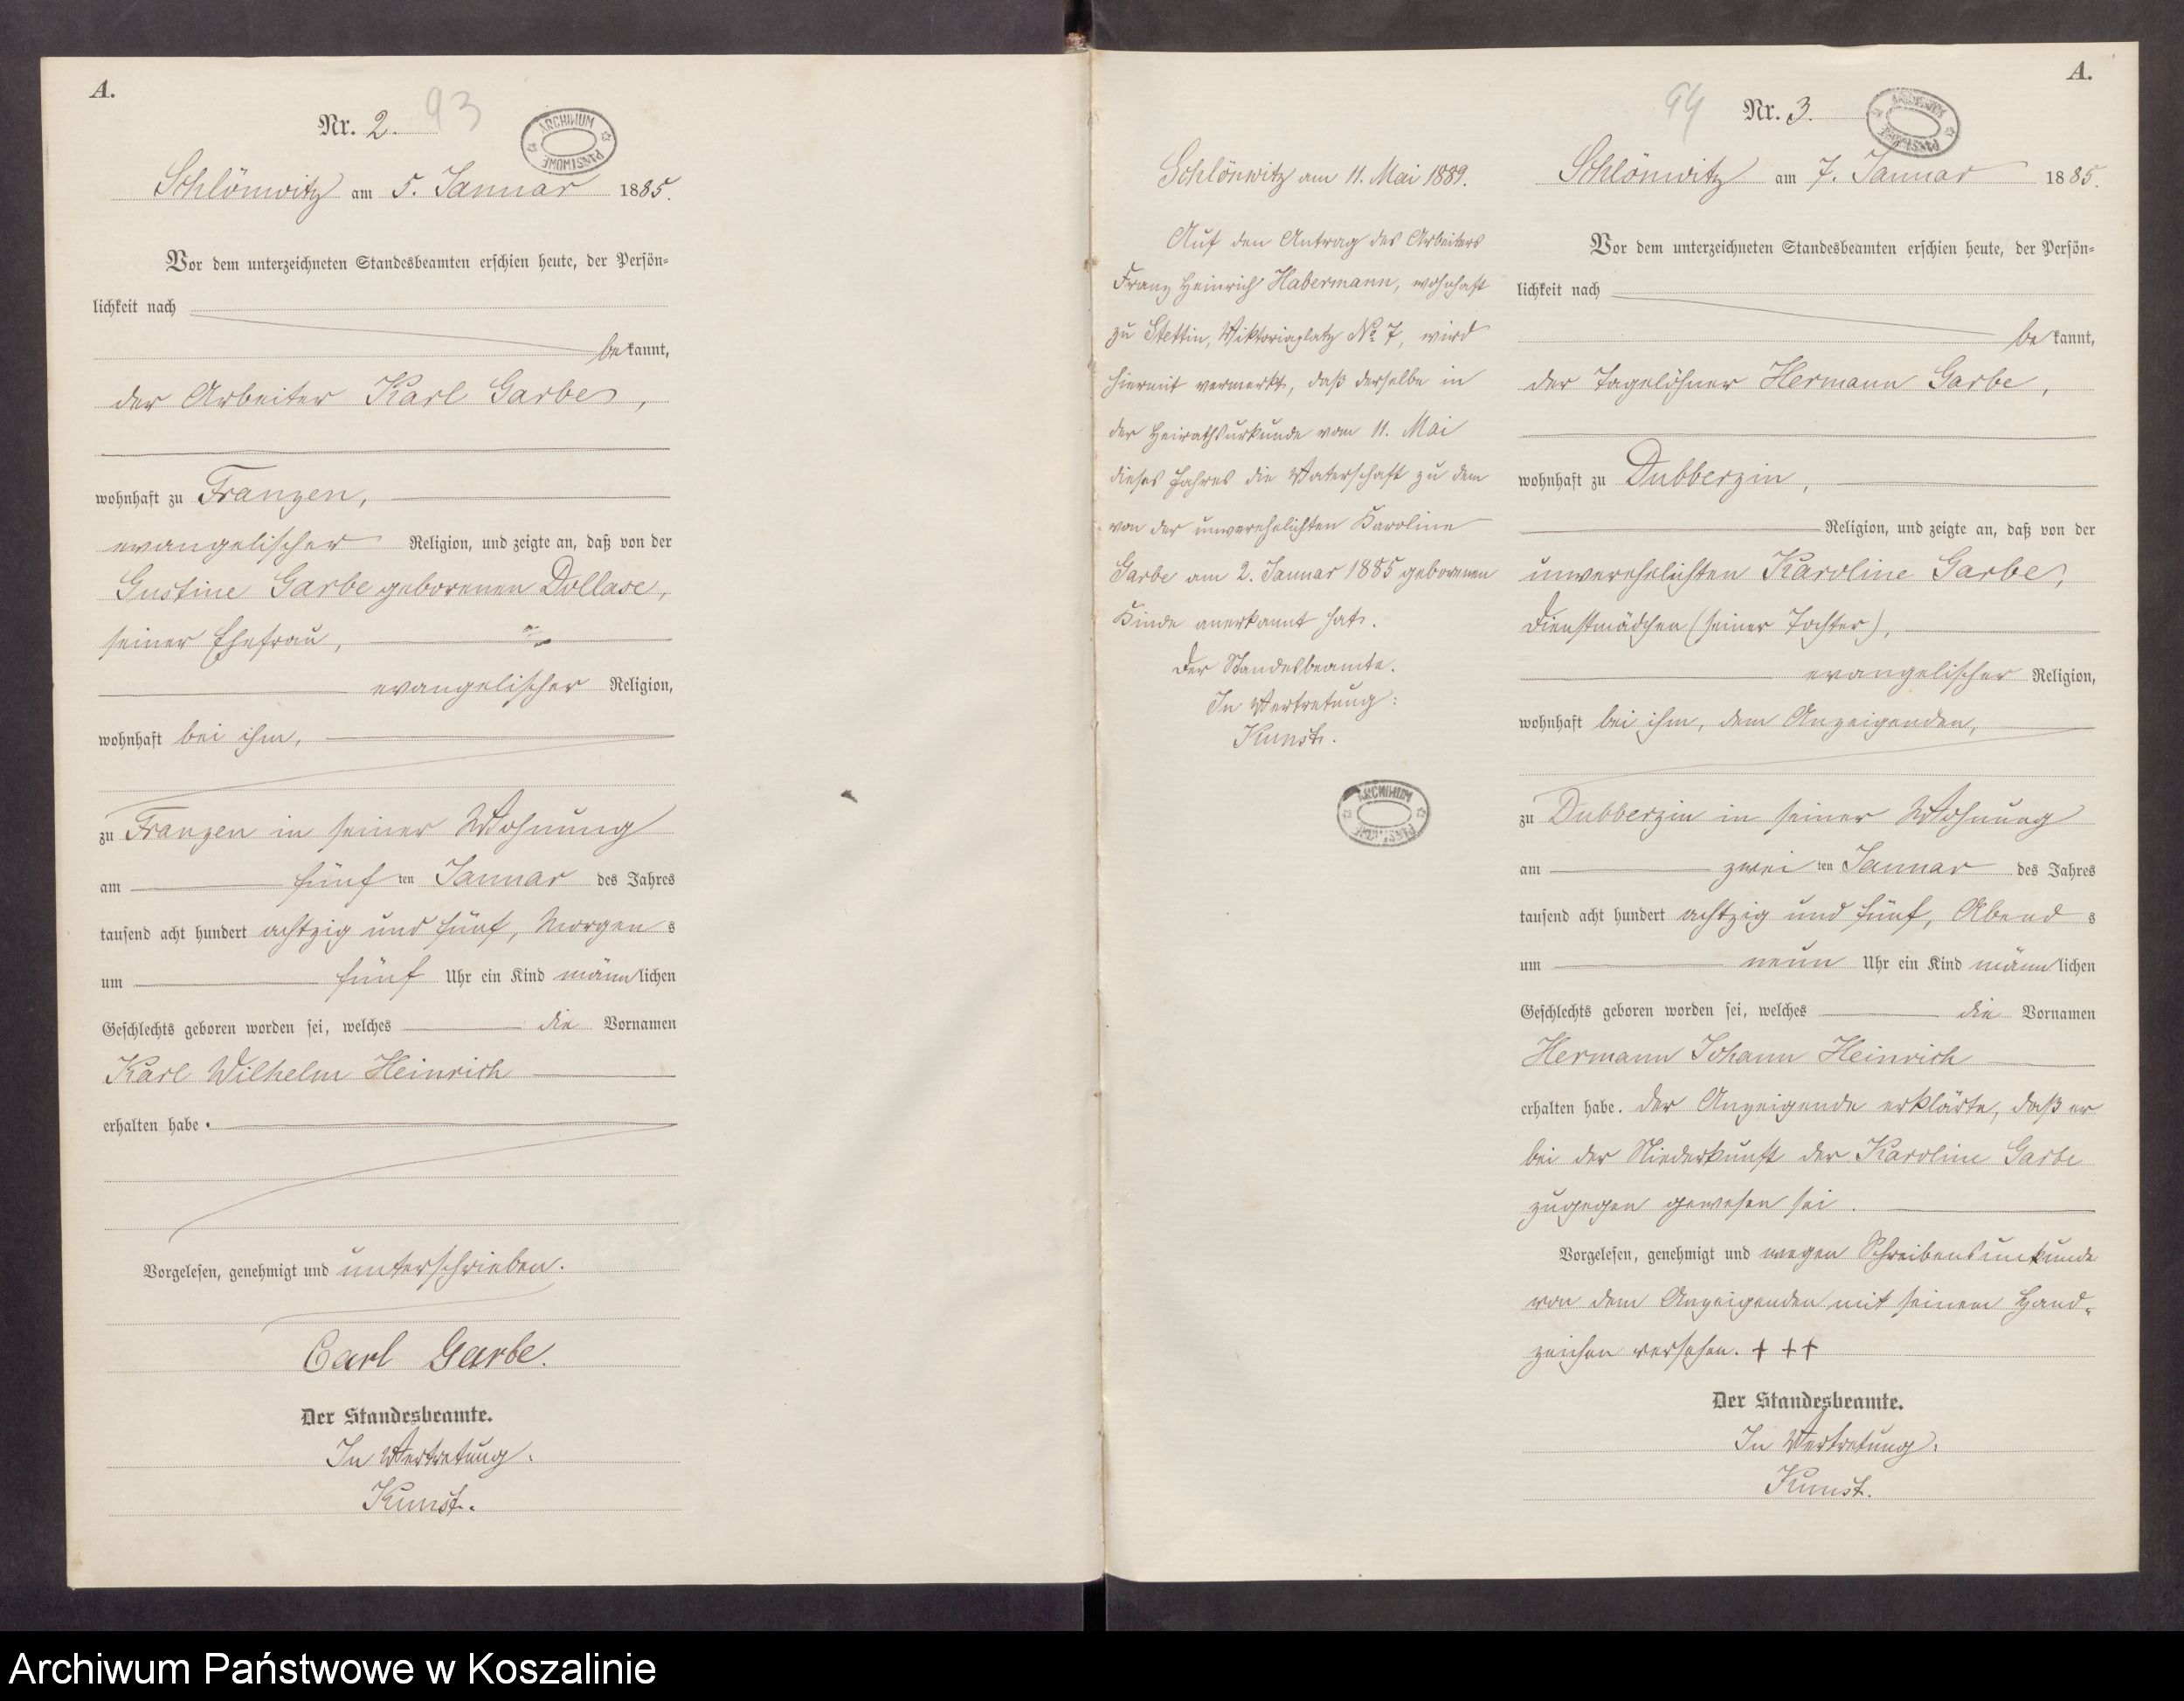 A.
Nr. 2. 93
ARCHIWUM PAŃSTWOWE
Schlönwitz am 5. Januar 1885.
Vor dem unterzeichneten Standesbeamten erschien heute, der Persön-
lichkeit nach
bekannt,
der Arbeiter Karl Garbe,
wohnhaft zu Franzen,
evangelischer Religion, und zeigte an, daß von der
Gustine Garbe geborenen Dollase,
seiner Ehefrau,
evangelischer Religion,
wohnhaft bei ihm,
zu Franzen in seiner Wohnung
am fünften Januar des Jahres
tausend acht hundert achtzig und fünf, Morgens
um fünf Uhr ein Kind männlichen
Geschlechts geboren worden sei, welches die Vornamen
Karl Wilhelm Heinrich
erhalten habe.
Vorgelesen, genehmigt und unterschrieben.
Carl Garbe.
Der Standesbeamte.
In Vertretung:
Kunst.
Schlönwitz am 11. Mai 1889.
Auf den Antrag des Arbeiters
Franz Heinrich Habermann, wohnhaft
zu Stettin, Viktoriaplatz No 7, wird
hiermit vermerkt, daß derselbe in
der Heirathsurkunde vom 11. Mai
dieses Jahres die Vaterschaft zu dem
von der unverehelichten Karoline
Garbe am 2. Januar 1885 geborenen
Kinde anerkannt hat.
Der Standesbeamte.
In Vertretung:
Kunst.
ARCHIWUM PAŃSTWOWE
A.
94 Nr. 3.
ARCHIWUM PAŃSTWOWE
Schlönwitz am 7. Januar 1885.
Vor dem unterzeichneten Standesbeamten erschien heute, der Persön-
lichkeit nach
bekannt,
der Tagelöhner Hermann Garbe,
wohnhaft zu Dubberzin,
Religion, und zeigte an, daß von der
unverehelichten Karoline Garbe,
Dienstmädchen (seiner Tochter),
evangelischer Religion,
wohnhaft bei ihm, dem Anzeigenden,
zu Dubberzin in seiner Wohnung
am zweiten Januar des Jahres
tausend acht hundert achtzig und fünf, Abends
um neun Uhr ein Kind männlichen
Geschlechts geboren worden sei, welches die Vornamen
Hermann Johann Heinrich
erhalten habe. Der Anzeigende erklärte, daß er
bei der Niederkunft der Karoline Garbe
zugegen gewesen sei.
Vorgelesen, genehmigt und wegen Schreibensunkunde
von dem Anzeigenden mit seinem Hand-
zeichen versehen. + + +
Der Standesbeamte.
In Vertretung:
Kunst.
Archiwum Państwowe w Koszalinie